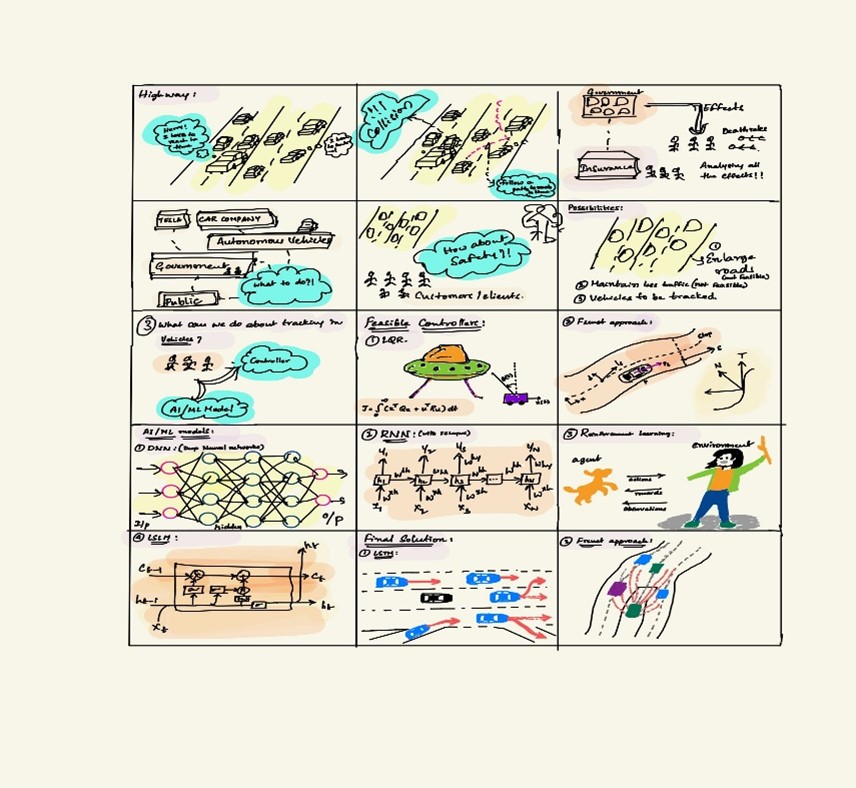 Highway:
Hurry!
I have to
reach in
time
!!!
Collision
Follow a
Government
Effects
Death rates
Insurance
Analysing all
the effects!!
TESLA
CAR COMPANY
Autonomous Vehicles
Government
What to do?!
Public
How about
Safety?!
Customers/clients.
Possibilities:
①
Enlarge
roads
(not feasible)
② Maintain less traffic (not feasible)
③ Vehicles to be tracked
③ What can we do about tracking in
Vehicles?
Controller
AI/ML Model
Feasible Controllers:
① LQR.
② Frenet approach:
N
T
AI/ML models:
① DNN: (Deep Neural networks)
I/p
hidden
O/P
② RNN:
y₁ y₂ y₃ yN
h₁
x₁ x₂ x₃ xN
③ Reinforcement Learning:
agent
environment
actions
rewards
observations
④ LSTM:
Cₜ₋₁
Cₜ
hₜ
hₜ₋₁
hₜ
xₜ
Final Solution:
① LSTM:
Frenet approach: